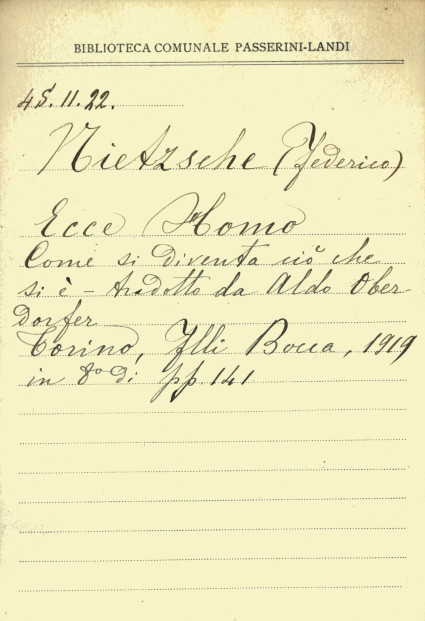 BIBLIOTECA COMUNALE PASSERINI-LANDI
4S. 11. 22.
Nietzsche (Federico)
Ecce Homo
Come si diventa ciò che
si è - tradotto da Aldo Ober-
dorfer
Torino, Flli Bocca, 1919
in 8º di pp. 141